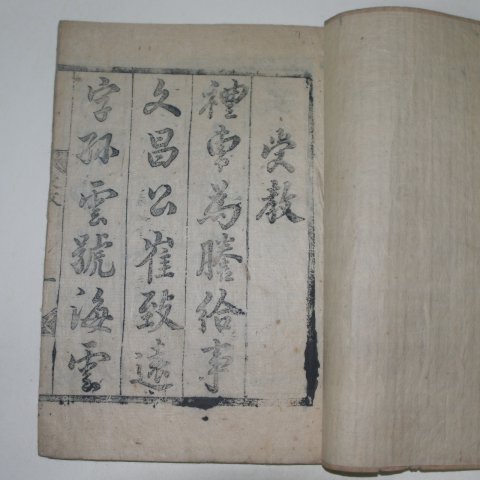 受教
禮曹為謄給事
文昌公崔致遠
字孤雲號海雲